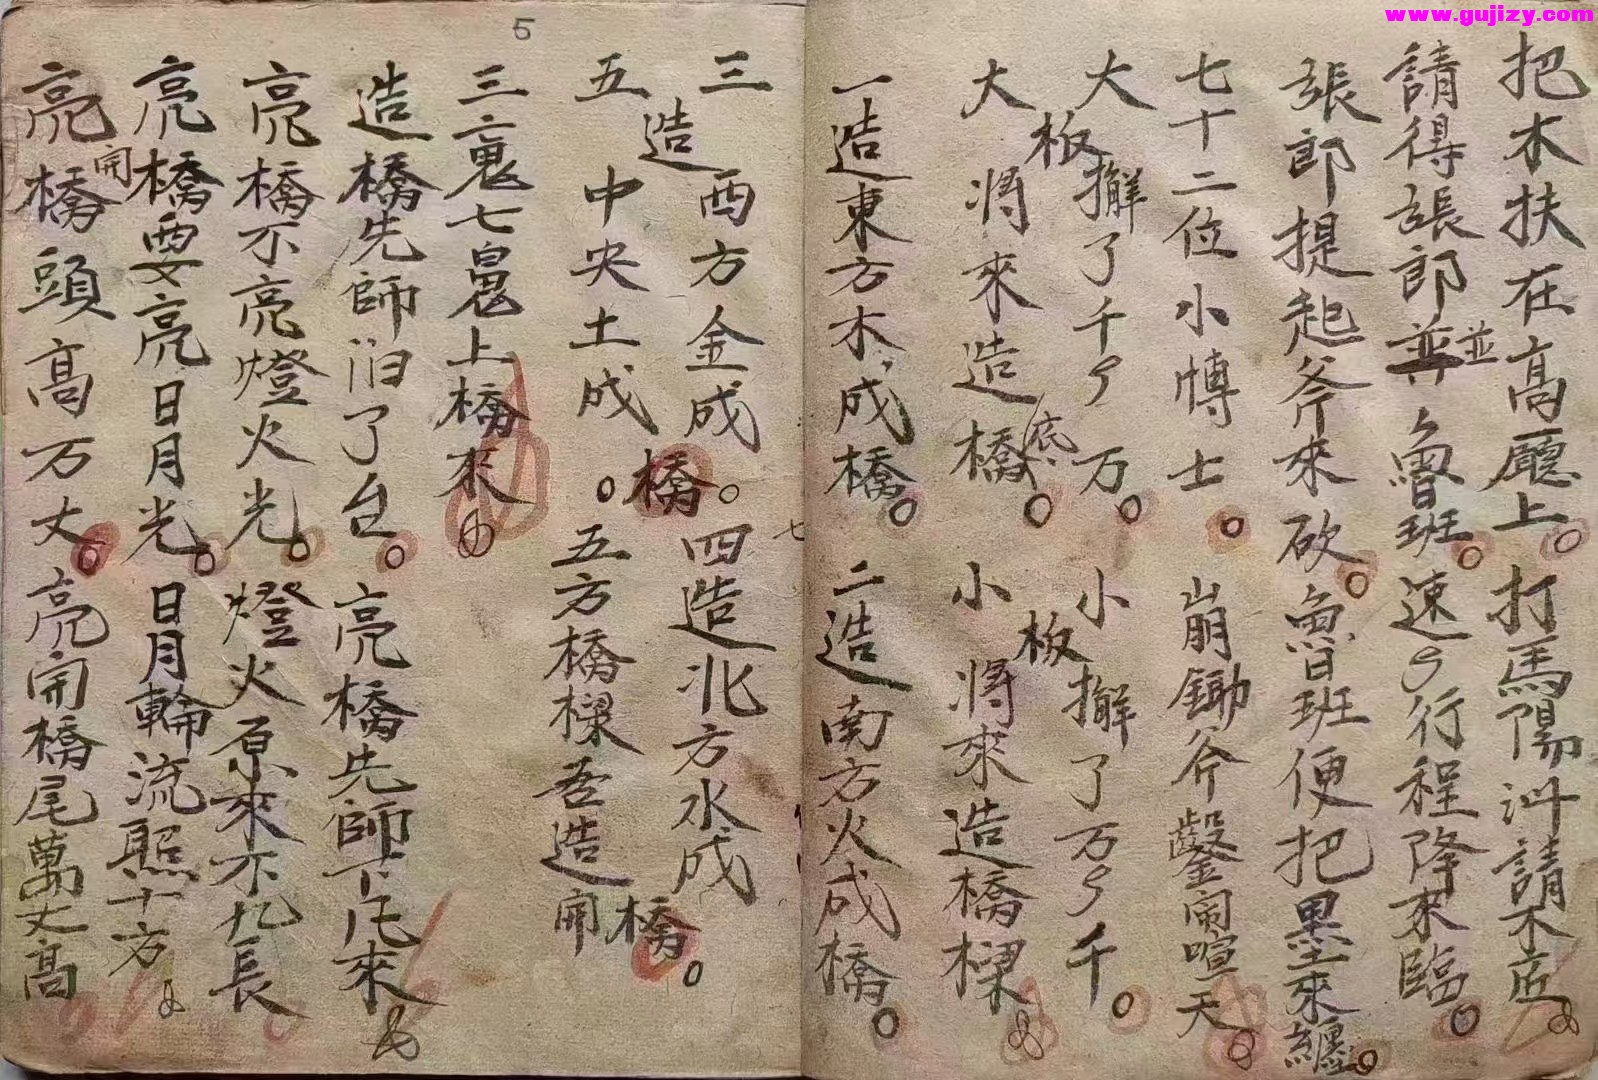 www.gujizy.com
把木扶在高廳上。打馬陽州請木匠
請得張郎並魯班。速々行程降來臨。
張郎提起斧來砍。魯班便把墨來纏。
七十二位小博士。崩鋤斧鑿鬧喧天。
大板擀了千々万。小板擀了万々千。
大板將來造橋底。小板將來造橋樑
一造東方木成橋。二造南方火成橋。
三造西方金成橋。四造北方水成橋。
五造中央土成橋。五方橋樑吾造開
三魂七魄上橋來
造橋先師归了台。亮橋先師下凡來
亮橋不亮燈火光。燈火原來不九長
亮橋要亮日月光。日月輪流照十方
亮開橋頭高万丈。亮開橋尾萬丈高
5